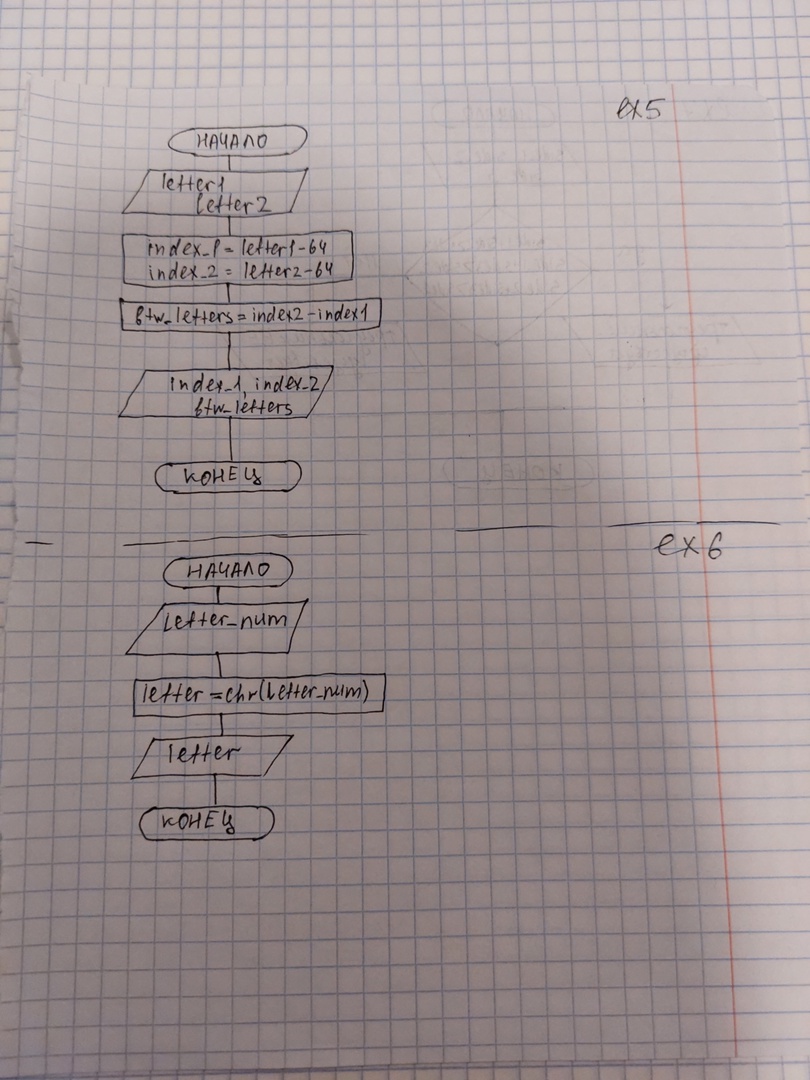 ex5
НАЧАЛО
letter1
letter2
index_1 = letter1-64
index_2 = letter2-64
btw_letters = index2-index1
index_1, index_2
btw_letters
КОНЕЦ
ex6
НАЧАЛО
letter_num
letter = chr(letter_num)
letter
КОНЕЦ